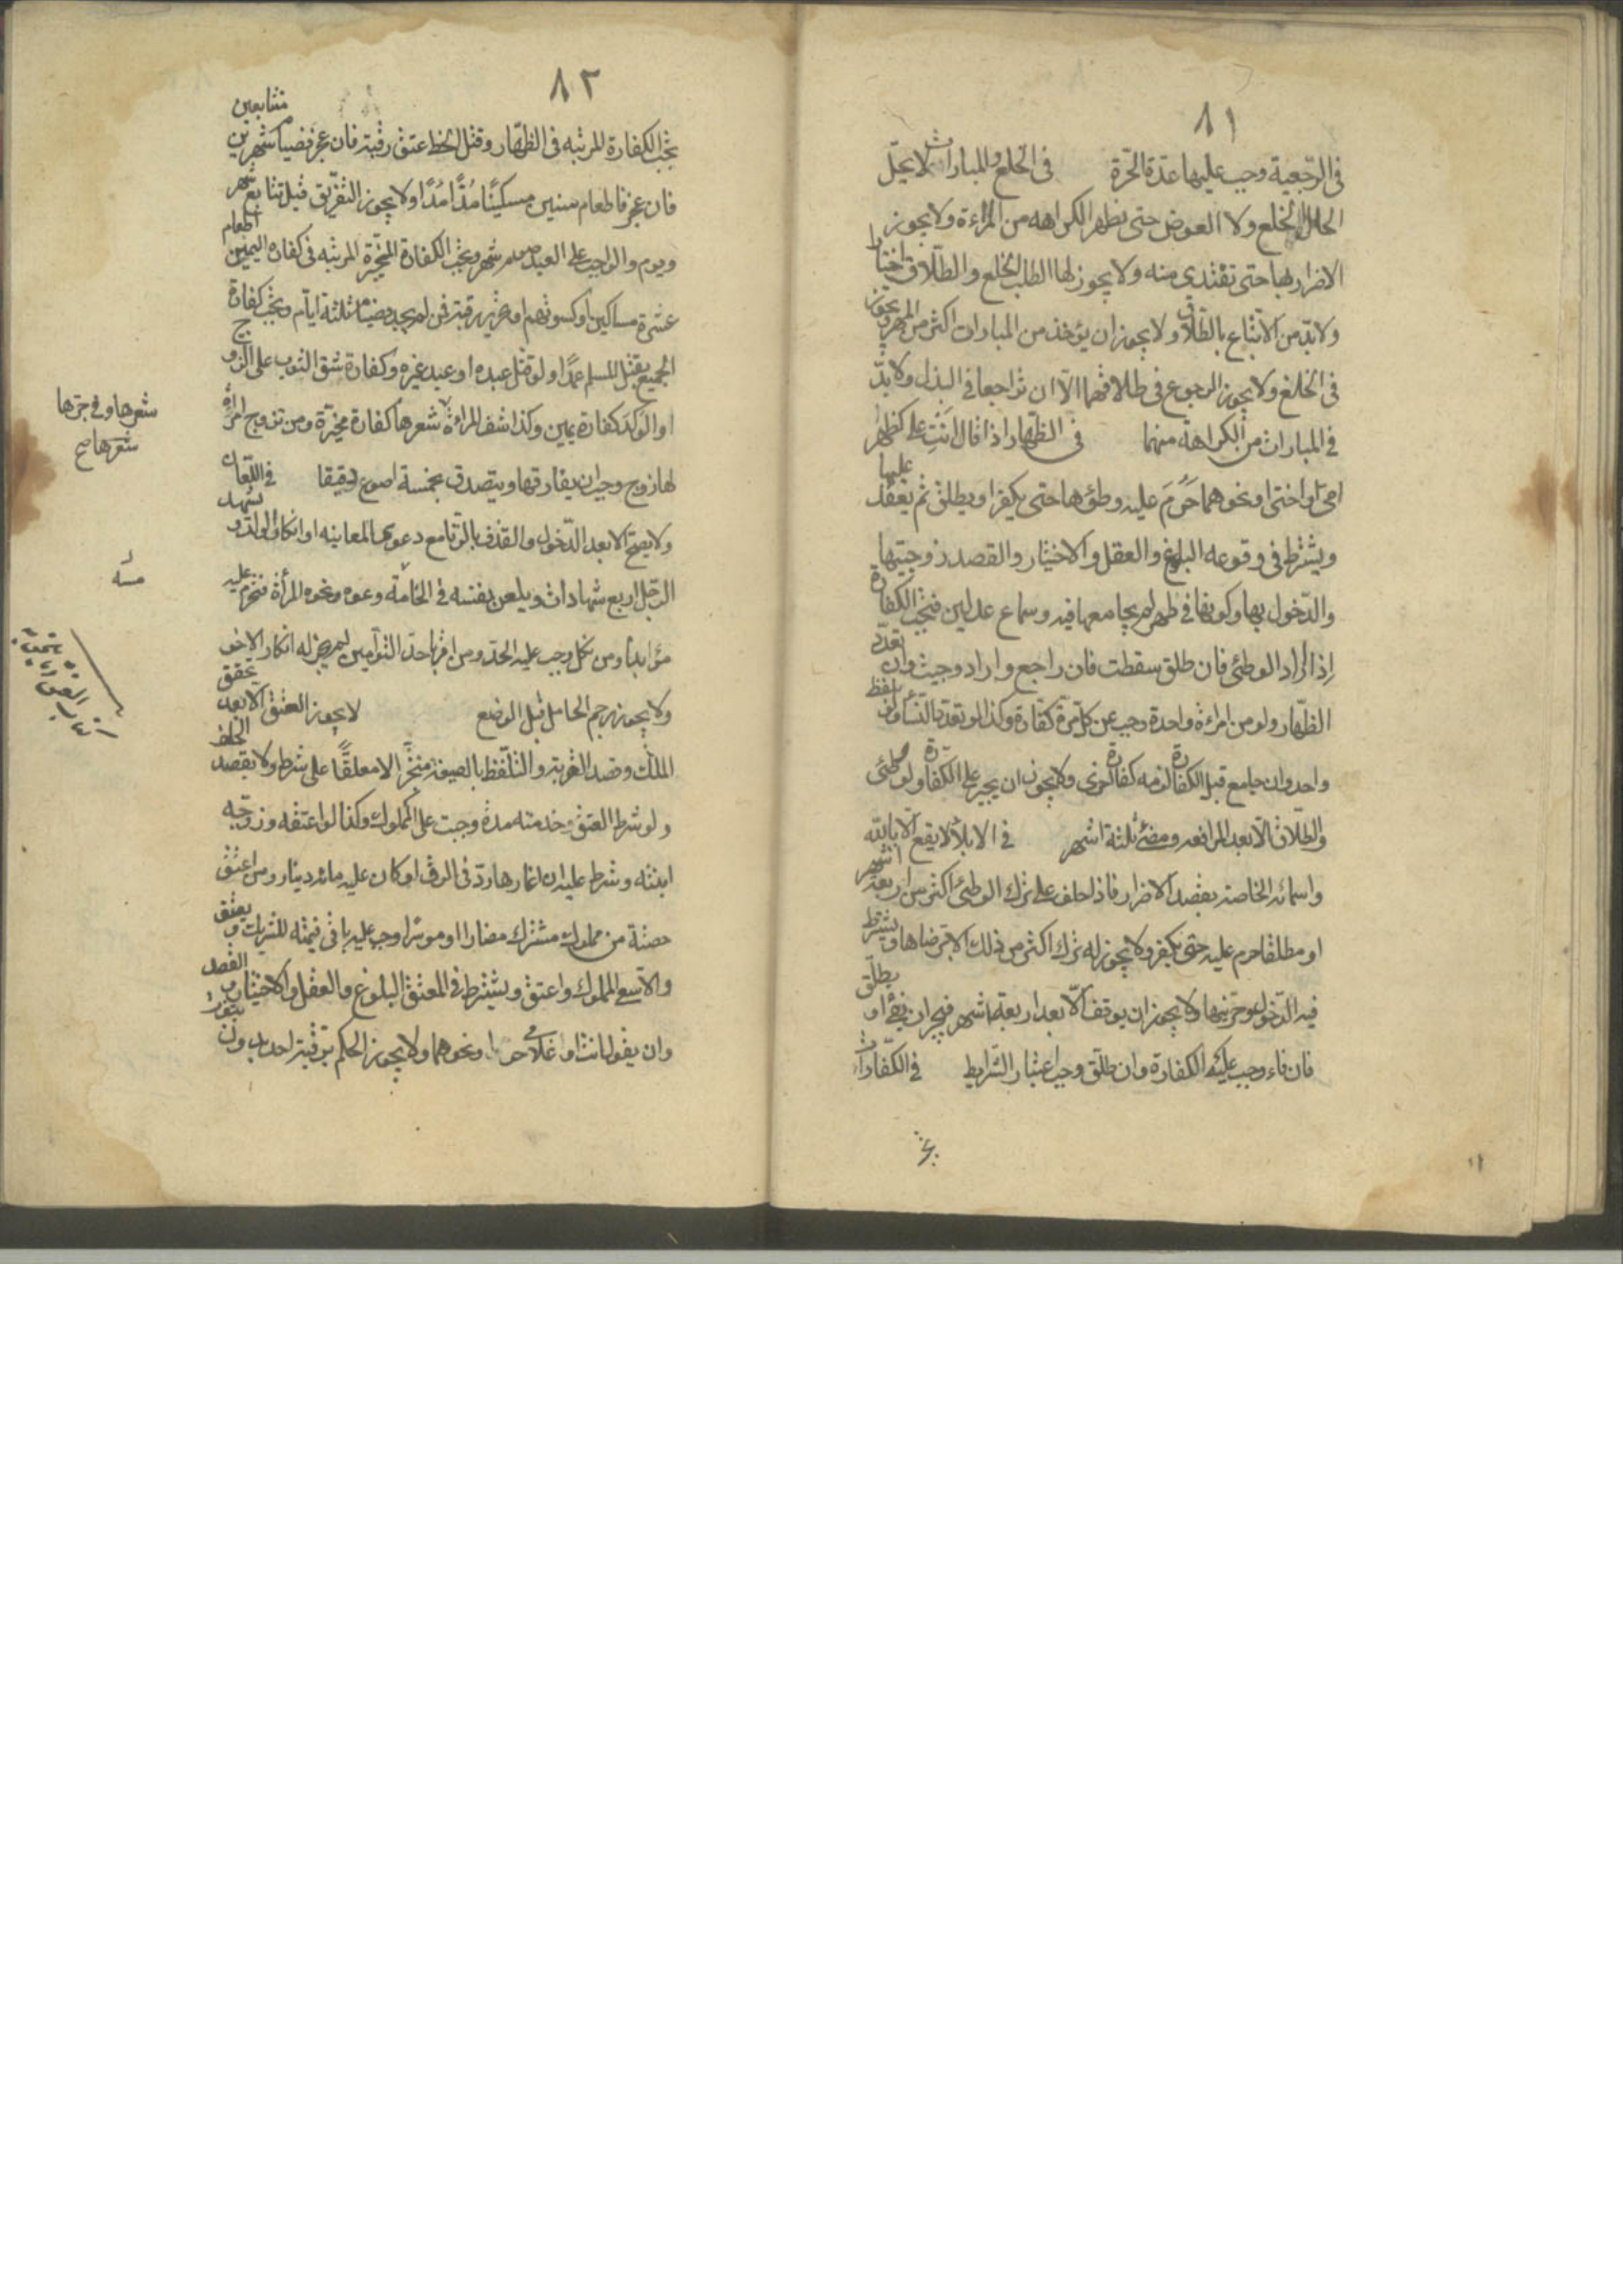 ٨١
فى الرّجعية وجب عليها عدّة الحّرة فى الخلع والمبارات لا يحلّ
الخلع ولا العوض حتى تظهر الكراهه من المراءة ولا يجوز
الاضرار بها حتى تفتدي منه ولا يجوز لها الطلب الخلع والطلاق اختيارا
ولابدّ من الاتّباع بالطّلاق ولا يجوز ان يؤخذ من المبارات اكثر من المهر ويجوز
فى الخلع ولا يجوز الرجوع فى طلاقهما الّا ان تراجعا فى البذل ولابدّ
فى المبارات من الكراهة منهما فى الظّهار اذا قال انتِ علىّ كظهر
امى او اختى او نحوهما حَرُمَ عليه وطئها حتى يكفر او يطلق ثم يعقد عليها
ويشترط فى وقوعه البلوغ والعقل والاختيار والقصد زوجيتها
والدّخول بها وكونها فى طهر لم يجامعها فيه وسماع عدلين فتجب الكفارة
اِذا اراد الوطئ فان طلق سقطت فان راجع واراد وجبت وان تعدّد
الظّهار ولو من امراءة واحدة وجب عن كلّ مرة كفّارة وكذا لو تعدّد النّساء ولفظ
واحد وان جامع قبل الكفارة لزمه كفارة اخرى ولا يجوز ان يجبر على الكفّارة ولو وطئى
والطّلاق الّا بعد المرافعه ومضى ثلثة اشهر فى الايلاء لا يقع الّا بالله
واسمائه الخاصة بقصد الاضرار فاذا حلف على ترك الوطئ اكثر من اربعة اشهر
او مطلقا حرم عليه حتى يكفر ولا يجوز له ترك اكثر من ذلك الا برضاها ويشترط
فيه الدّخول وحرّيتها ولا يجوز ان يوقف الّا بعد اربعة اشهر فيجبر ان يفئ او يطلّق
فان فاء وجب عليه الكفارة وان طلّق وجب اعتبار الشّرايط فى الكفّارات
٨٢
تجب الكفارة المرتبه فى الظّهار وقتل الخطا عتق رقبة فان عجز فصيام شهرين متتابعين
فان عجز فاطعام ستين مسكينًا مُدًّا مُدًّا ولا يجوز التفريق قبل تتابع شهر
ويوم والواجب على العبد صوم شهر وتجب الكفارة المخيّرة المرتبه فى كفاره اليمين اطعام
عشرة مساكين او كسوتهم او تحرير رقبة فمن لم يجد فصيام ثلثة ايّام وتجب كفارة
الجميع بقتل المسلم عمدًا ولو قتل عبده او عبد غيره وكفارة شق الثوب على الزوج
او الولد كفارة يمين وكذا شف المراءة شعرها كفارة مخيّرة ومن تزوج امرأة
لها زوج وجب ان يفارقها ويتصدق بخمسة اصوع دقيقا فى اللّعان
ولا يصح الا بعد الدّخول والقذف بالزّنا مع دعوى المعاينه او انكار الولد ويشهد
الرّجل اربع شهادات ويلعن نفسه فى الخامسة وعوه ونحوه المرأة فتحرم عليه
مؤابدا ومن نكل وجب عليه الحدّ ومن اقرّ باحد التوآمين لم يجز له انكار الاخر
ولا يجوز رجم الحامل قبل الوضع لا يجوز العتق الا بعد تحقق
الملك وقصد القربة والتلّفظ بالصيغة منجّزًا لا معلقًّا على شرط ولا بقصد الحلف
ولو شرط العتق وخدمته مدة وجبت على المملوك وكذا لو اعتقه وزوّجه
ابنته وشرط عليه ان اغارها ردّ فى الرق او كان عليه مائه دينار ومن اعتق
حصّة من مملوك مشترك مضارا او موسرًا وجب عليه باقى قيمته للشريك ويعتق
والّا سعى المملوك واعتق ويشترط فى المعتق البلوغ والعقل والاختيار والقصد
وان يقول انت او غلامى حر او نحوهما ولا يجوز الحكم برقية احد بدون
شعرها وفى جزها
شعرها صح